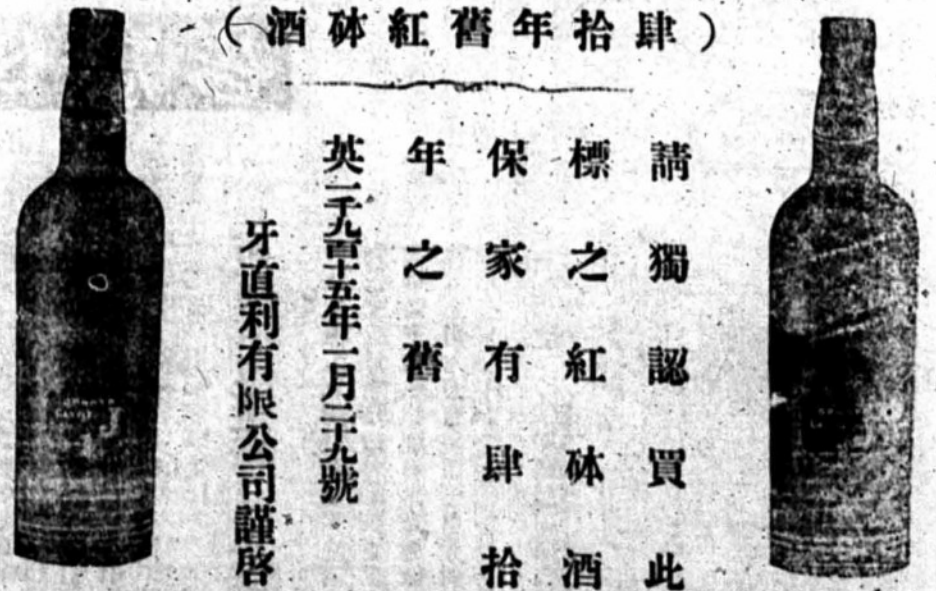 （肆拾年舊紅砵酒）
請獨認買此
標之紅砵酒
保家有肆拾
年之舊
英一千九百十五年一月二十九號
牙直利有限公司謹啓